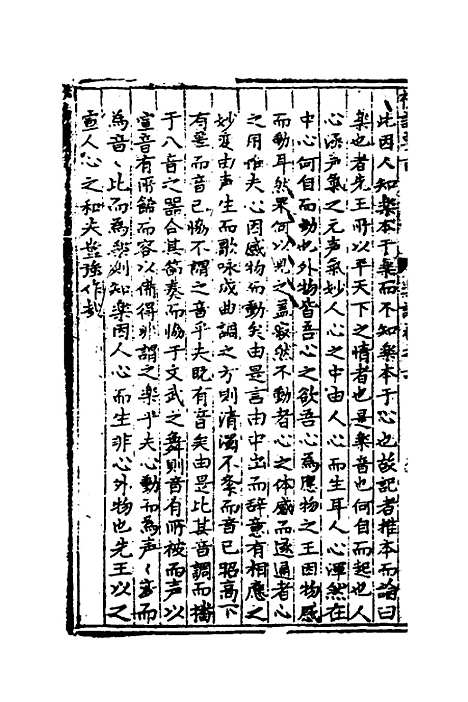 、此因人知樂本于樂而不知樂本于心也故記者推本而論曰
楽也者先王所以平天下之情者也是楽音也何自而起也人
心添与氣之元声氣妙人心之中由人心而生耳人心渾然在
中心何自而動也外物皆吾心之欲吾心為應物之王因物感
而動耳然果何以見之盖寂然不動者心之体感而遂通者心
之用作夫心因感物而動矣由是言由中出而辞意有相應之
妙变由声生而歌咏成曲調之方則清濁不紊而音已昭高下
有差而音已恊不謂之音乎夫既有音矣由是比其音調而播
于八音之器合其節奏而恊于文武之舞則音有所被而声以
宣音有所餙而容以俻得非謂之楽乎夫心動而為声、変而
為音、比而為楽則知楽因人心而生非心外物也先王以之
宣人心之和夫豈強作哉